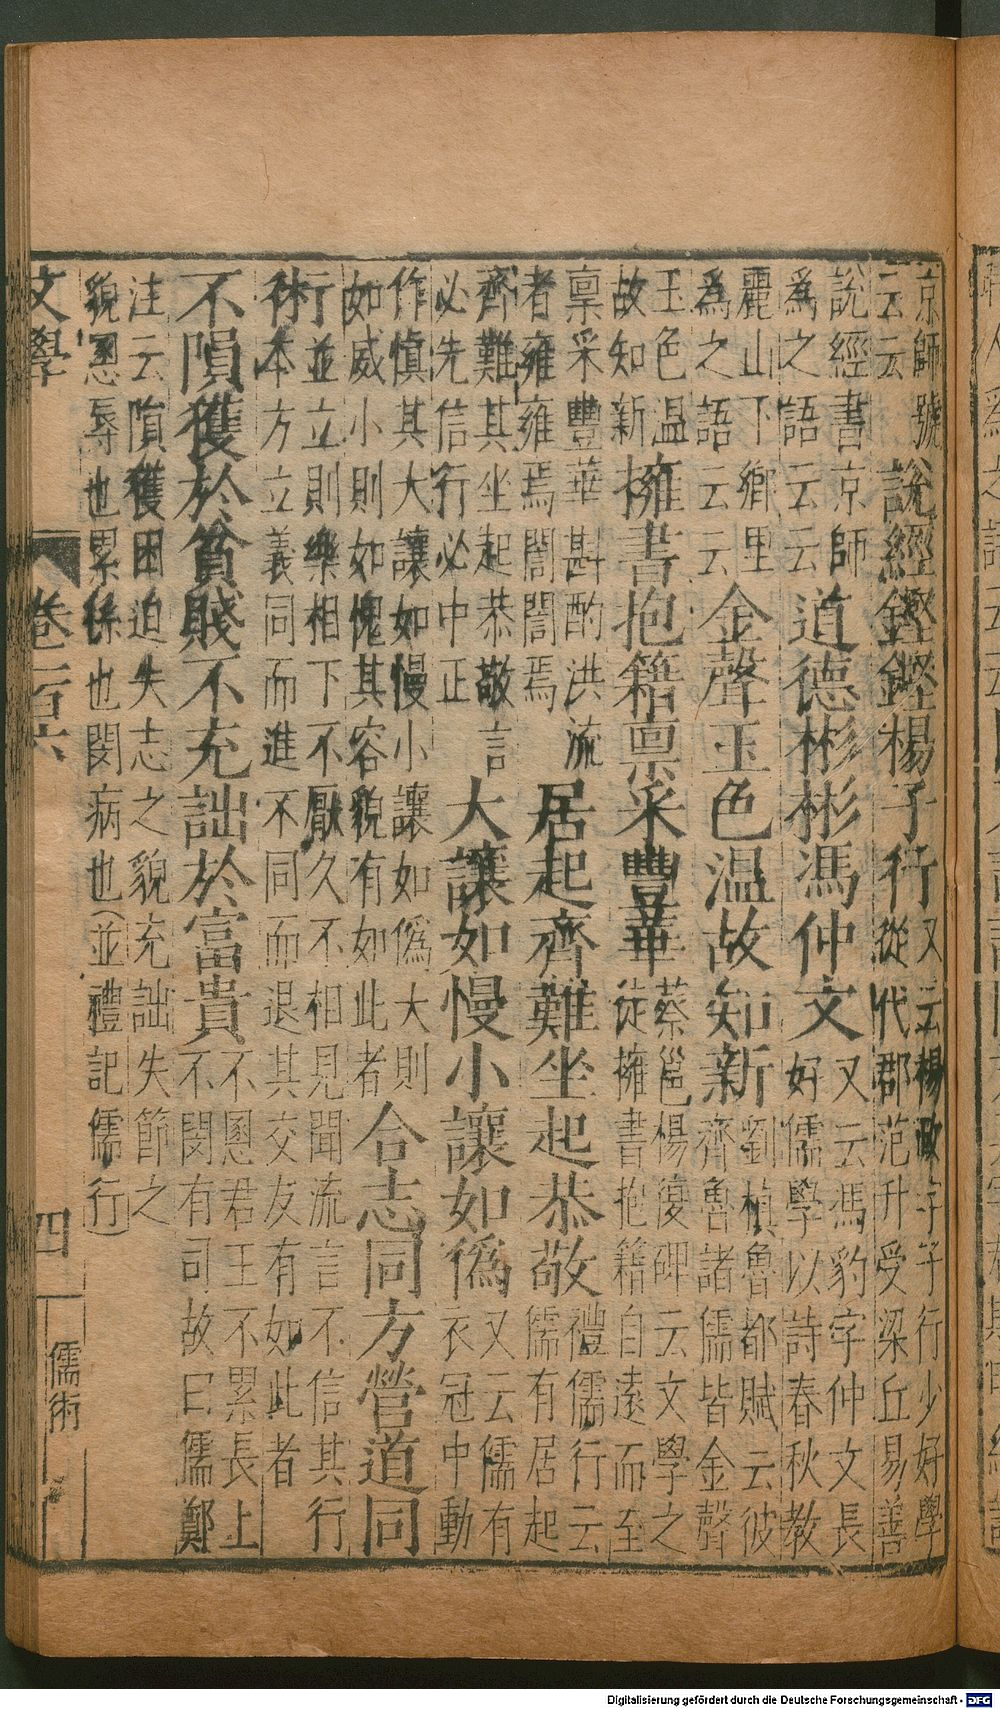 京師號
云云
說經鏗鏗楊子行
又云楊政字子行少好學
從代郡范升受梁丘易善
說經書京師
為之語云云
道德彬彬馮仲文
又云馮豹字仲文長
好儒學以詩春秋教
麗山下鄉里
為之語云云
金聲玉色溫故知新
劉楨魯都賦云彼
齊魯諸儒皆金聲
玉色溫
故知新
擁書抱籍禀采豐華
蔡邕楊復碑云文學之
徒擁書抱籍自遠而至
禀采豐華斟酌洪流
者雍雍焉誾誾焉
居起齊難坐起恭敬
禮儒行云
儒有居起
齊難其坐起恭敬言
必先信行必中正
大讓如慢小讓如僞
又云儒有
衣冠中動
作慎其大讓如慢小讓如僞大則
如威小則如愧其容貌有如此者
合志同方營道同
行並立則樂相下不厭久不相見聞流言不信其行
術本方立義同而進不同而退其交友有如此者
不隕獲於貧賤不充詘於富貴
不慁君王不累長上
不閔有司故曰儒鄭
注云隕獲困迫失志之貌充詘失節之
貌慁辱也累係也閔病也(並禮記儒行)
文學 卷一百六 四 儒術
Digitalisierung gefördert durch die Deutsche Forschungsgemeinschaft - DFG